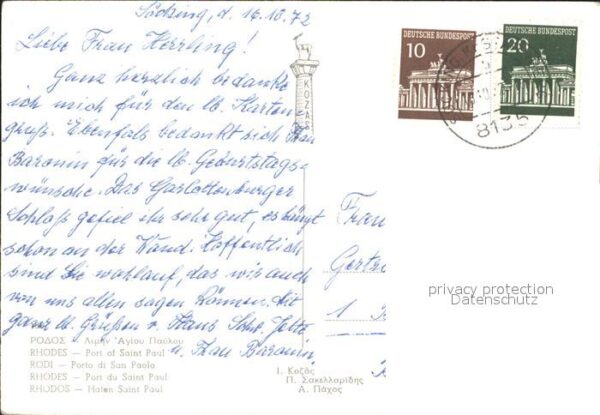 Söcking, d. 16.10.72
Liebe Frau Herrling!
Ganz herzlich bedanke
ich mich für den lb. Karten-
gruß. Ebenfals bedankt sich Frau
Baronin für die lb. Geburtstags-
wünsche. Das Garlottenburger
Schloß gefiel ihr sehr gut, es hängt
schon an der Wand. Hoffentlich
sind Sie wohlauf, das wir auch
von uns allen sagen können. Mit
ganz lb. Grüßen v. Hans
u. Frau Baronin
KOZAS
DEUTSCHE BUNDESPOST
10
DEUTSCHE BUNDESPOST
20
8135
Frau
Gertr
1
privacy protection
Datenschutz
ΡΟΔΟΣ – Λιμὴν Ἁγίου Παύλου
RHODES – Port of Saint Paul
RODI – Porto di San Paolo
RHODES – Port du Saint Paul
RHODOS – Hafen Saint Paul
Ι. Κοζᾶς
Π. Σακελλαρίδης
Α. Πάχος